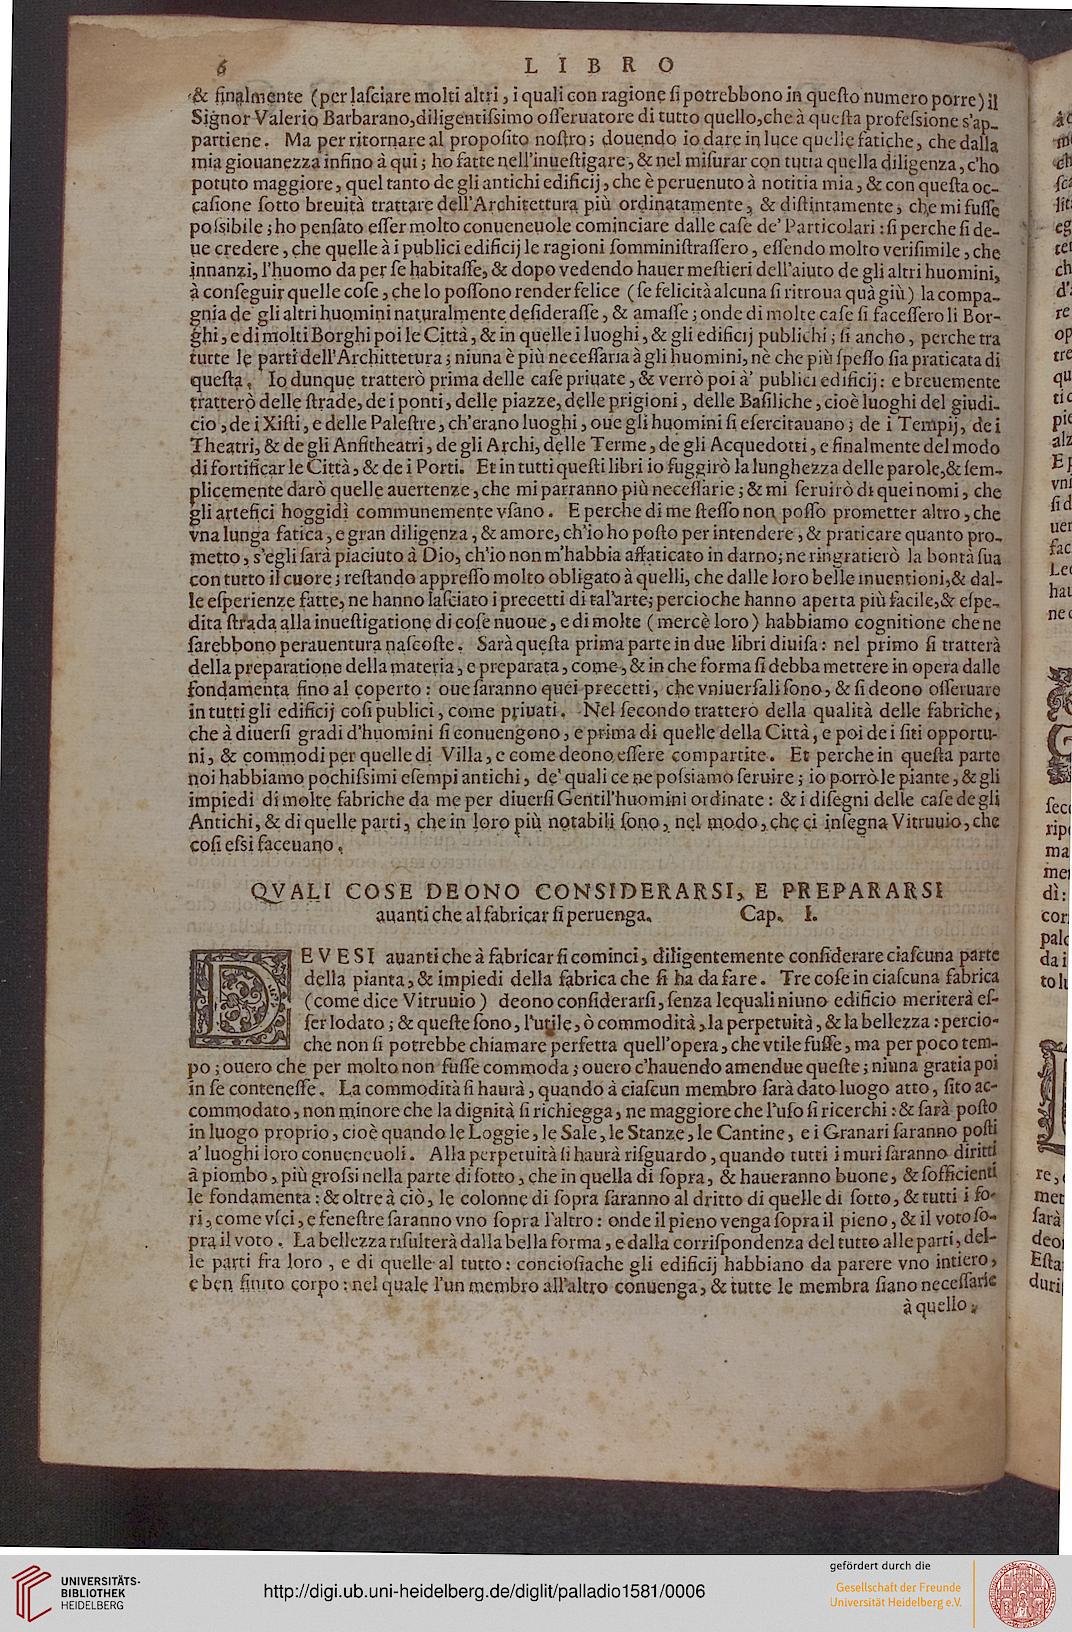 6 LIBRO
& finalmente (per laſciare molti altri, i quali con ragione ſi potrebbono in queſto numero porre) il
Signor Valerio Barbarano, diligentiſsimo oſſeruatore di tutto quello, che à queſta profeſsione s'ap-
partiene. Ma per ritornare al propoſito noſtro; douendo io dare in luce quelle fatiche, che dalla
mia giouanezza inſino à qui; ho fatte nell'inueſtigare, & nel miſurar con tutta quella diligenza, c'ho
potuto maggiore, quel tanto de gli antichi edificij, che è peruenuto à notitia mia, & con queſta oc-
caſione ſotto breuità trattare dell'Architettura più ordinatamente, & diſtintamente, che mi fuſſe
poſsibile; ho penſato eſſer molto conueneuole cominciare dalle caſe de' Particolari: ſi perche ſi de-
ue credere, che quelle à i publici edificij le ragioni ſomminiſtraſſero, eſſendo molto veriſimile, che
innanzi, l'huomo da per ſe habitaſſe, & dopo vedendo hauer meſtieri dell'aiuto de gli altri huomini,
à conſeguir quelle coſe, che lo poſſono render felice (ſe felicità alcuna ſi ritroua quà giù) la compa-
gnia de gli altri huomini naturalmente deſideraſſe, & amaſſe; onde di molte caſe ſi faceſſero li Bor-
ghi, e di molti Borghi poi le Città, & in quelle i luoghi, & gli edificij publichi; ſi ancho, perche tra
tutte le parti dell'Archittetura; niuna è più neceſſaria à gli huomini, nè che più ſpeſſo ſia praticata di
queſta. Io dunque tratterò prima delle caſe priuate, & verrò poi à' publici edificij: e breuemente
tratterò delle ſtrade, de i ponti, delle piazze, delle prigioni, delle Baſiliche, cioè luoghi del giudi-
cio, de i Xiſti, e delle Paleſtre, ch'erano luoghi, oue gli huomini ſi eſercitauano; de i Tempij, de i
Theatri, & de gli Anfitheatri, de gli Archi, delle Terme, de gli Acquedotti, e finalmente del modo
di fortificar le Città, & de i Porti. Et in tutti queſti libri io fuggirò la lunghezza delle parole, & ſem-
plicemente darò quelle auertenze, che mi parranno più neceſſarie; & mi ſeruirò di quei nomi, che
gli artefici hoggidì communemente vſano. E perche di me ſteſſo non poſſo prometter altro, che
vna lunga fatica, e gran diligenza, & amore, ch'io ho poſto per intendere, & praticare quanto pro-
metto, s'egli ſarà piaciuto à Dio, ch'io non m'habbia affaticato in darno; ne ringratierò la bontà ſua
con tutto il cuore; reſtando appreſſo molto obligato à quelli, che dalle loro belle inuentioni, & dal-
le eſperienze fatte, ne hanno laſciato i precetti di tal'arte; percioche hanno aperta più facile, & eſpe-
dita ſtrada alla inueſtigatione di coſe nuoue, e di molte (mercè loro) habbiamo cognitione che ne
ſarebbono perauentura naſcoſte. Sarà queſta prima parte in due libri diuiſa: nel primo ſi tratterà
della preparatione della materia, e preparata, come, & in che forma ſi debba mettere in opera dalle
fondamenta fino al coperto: oue ſaranno quei precetti, che vniuerſali ſono, & ſi deono oſſeruare
in tutti gli edificij coſi publici, come priuati. Nel ſecondo tratterò della qualità delle fabriche,
che à diuerſi gradi d'huomini ſi conuengono, e prima di quelle della Città, e poi de i ſiti opportu-
ni, & commodi per quelle di Villa, e come deono eſſere compartite. Et perche in queſta parte
noi habbiamo pochiſsimi eſempi antichi, de' quali ce ne poſsiamo ſeruire; io porrò le piante, & gli
impiedi di molte fabriche da me per diuerſi Gentil'huomini ordinate: & i diſegni delle caſe de gli
Antichi, & di quelle parti, che in loro più notabili ſono, nel modo, che ci inſegna Vitruuio, che
coſi eſsi faceuano.
QVALI COSE DEONO CONSIDERARSI, E PREPARARSI
auanti che al fabricar ſi peruenga. Cap. I.
DEVESI auanti che à fabricar ſi cominci, diligentemente conſiderare ciaſcuna parte
della pianta, & impiedi della fabrica che ſi ha da fare. Tre coſe in ciaſcuna fabrica
(come dice Vitruuio) deono conſiderarſi, ſenza lequali niuno edificio meriterà eſ-
ſer lodato; & queſte ſono, l'utile, ò commodità, la perpetuità, & la bellezza: percio-
che non ſi potrebbe chiamare perfetta quell'opera, che vtile fuſſe, ma per poco tem-
po; ouero che per molto non fuſſe commoda; ouero c'hauendo amendue queſte; niuna gratia poi
in ſe conteneſſe. La commodità ſi haurà, quando à ciaſcun membro ſarà dato luogo atto, ſito ac-
commodato, non minore che la dignità ſi richiegga, ne maggiore che l'uſo ſi ricerchi: & ſarà poſto
in luogo proprio, cioè quando le Loggie, le Sale, le Stanze, le Cantine, e i Granari ſaranno poſti
a' luoghi loro conueneuoli. Alla perpetuità ſi haurà riſguardo, quando tutti i muri ſaranno diritti
à piombo, più groſsi nella parte di ſotto, che in quella di ſopra, & haueranno buone, & ſofficienti
le fondamenta: & oltre à ciò, le colonne di ſopra ſaranno al dritto di quelle di ſotto, & tutti i fo-
ri, come vſci, e feneſtre ſaranno vno ſopra l'altro: onde il pieno venga ſopra il pieno, & il voto ſo-
pra il voto. La bellezza riſulterà dalla bella forma, e dalla corriſpondenza del tutto alle parti, del-
le parti fra loro, e di quelle al tutto: concioſiache gli edificij habbiano da parere vno intiero,
e ben finito corpo: nel quale l'un membro all'altro conuenga, & tutte le membra ſiano neceſſarie
à quello,
UNIVERSITÄTS-
BIBLIOTHEK
HEIDELBERG
http://digi.ub.uni-heidelberg.de/diglit/palladio1581/0006
gefördert durch die
Gesellschaft der Freunde
Universität Heidelberg e.V.